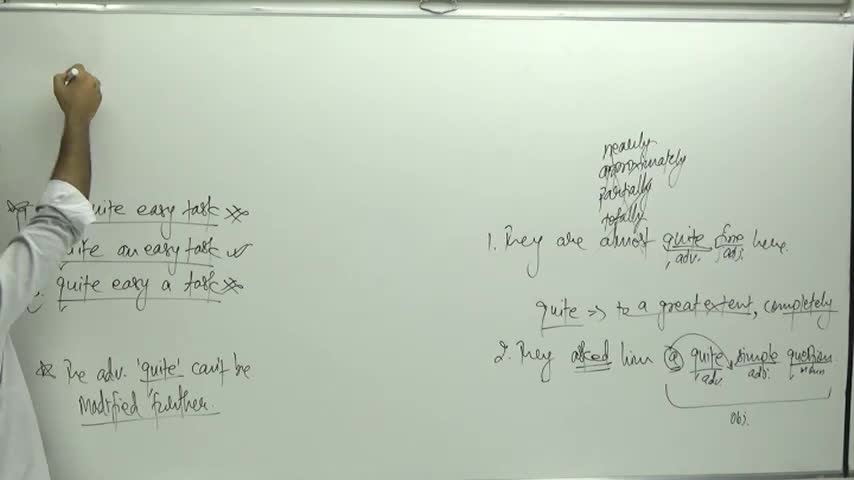 quite easy task
quite an easy task ✓
quite easy a task
The adv. 'quite' can't be
modified further.
nearly
approximately
partially
totally
1. They are almost quite fine here.
adv. adj.
quite => to a great extent, completely
2. They asked him a quite simple question
adv. adj. noun
obj.